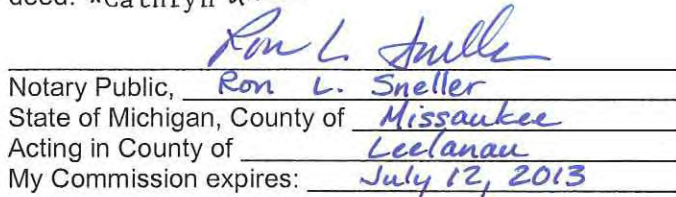 deed. *Cathryn
Ron L. Sneller
Notary Public, Ron L. Sneller
State of Michigan, County of Missaukee
Acting in County of Leelanau
My Commission expires: July 12, 2013